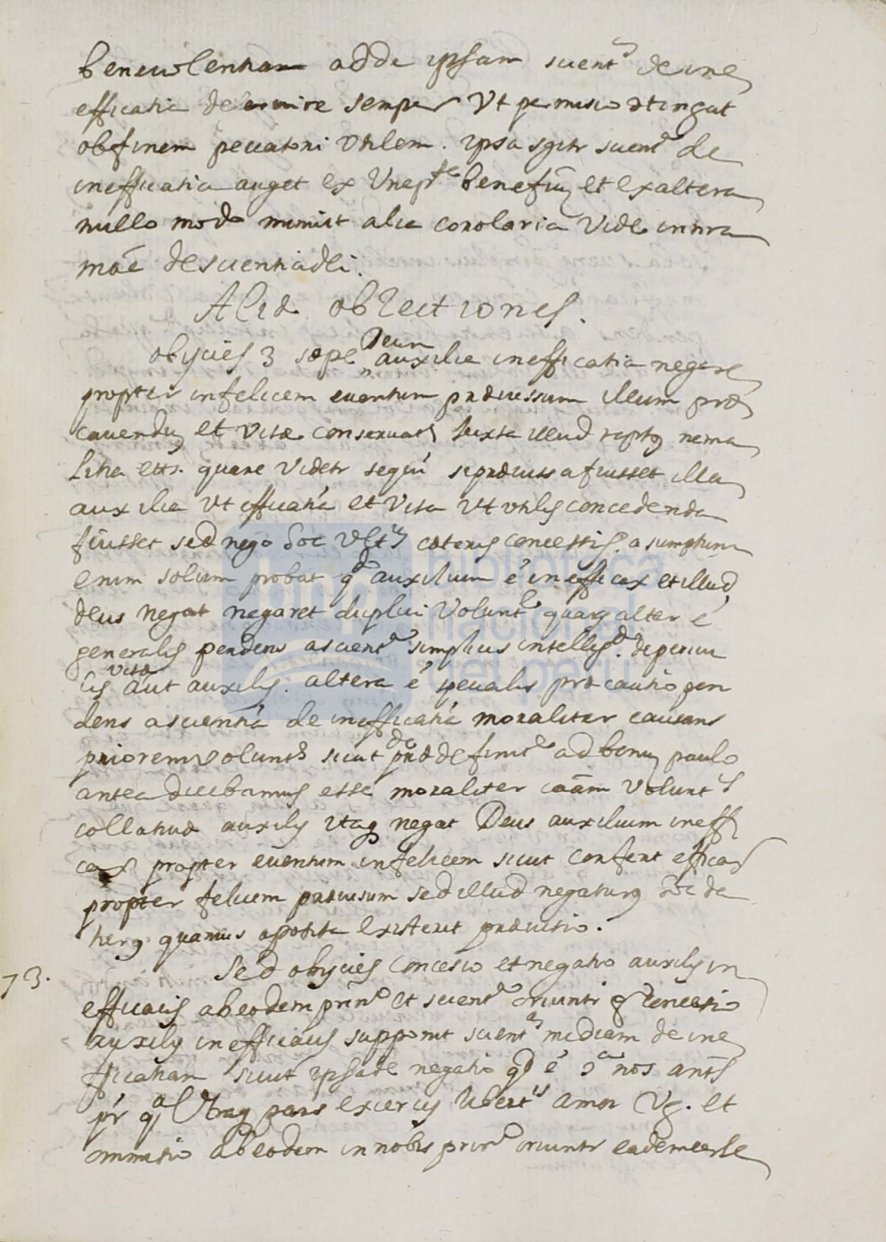 benevolentiam adde ipsam scient.ª de ine
efficatia de semper Vt permisio attingat
ob finem peccatori Vtilem. ipsa igitr scient.ª de
inefficatia auget ex Una pt.e benefiũ et ex altera
nullo modo minuit alia corolaria Vide infra
de scientia dei.
Aliæ obiectiones.
obijcies 3 sæpe Deum auxilia inefficatia negare
propter infelicem eventum prævissum illum præ
cavendũ et vitæ conservat iuxta illud raptꝰ ne ma
litia etts. quare Videtr sequi si prævissa fuisset illa
auxilia Vt efficatia et Vita Vt Vtilis concedenda
fuisset sed nego hoc cæteris concessis. asumptum
enim solum probat qd auxilium é inefficax et illud
deus negat negaret duplici Volunt.e quarũ alter é
generalis pendens a scient.ª simplicis intellig.ª de pericu
lis vitæ aut auxilij. altera é specialis præcautio pen
dens a scientia de inefficatia moraliter causans
priorem volunt.e sicut de prædefinit.e ad bonũ paulo
antea dicebamus esse moraliter caãm Volunt.s
collativæ auxilij itaq negat Deus auxilium ineffi
cax propter eventum infelicem sicut confert efficax
propter felicem prævisum sed illud negaturꝰ hoc da
turꝰ quamvis oposita existeret prævisio.
73. Sed obijcies concesio et negatio auxilij in
efficacis ab eodem prin.º et scient.ª oriuntr concesio
auxilij inefficacis supponit scient.ª mediam de ine
fficatiam sicut ipsa de negatio qd é ɔ.ª nos
Utraq pars exercitij libert.is amor Vg. et
ommitio ab eodem in nobis prin.º oriuntr eadem esse